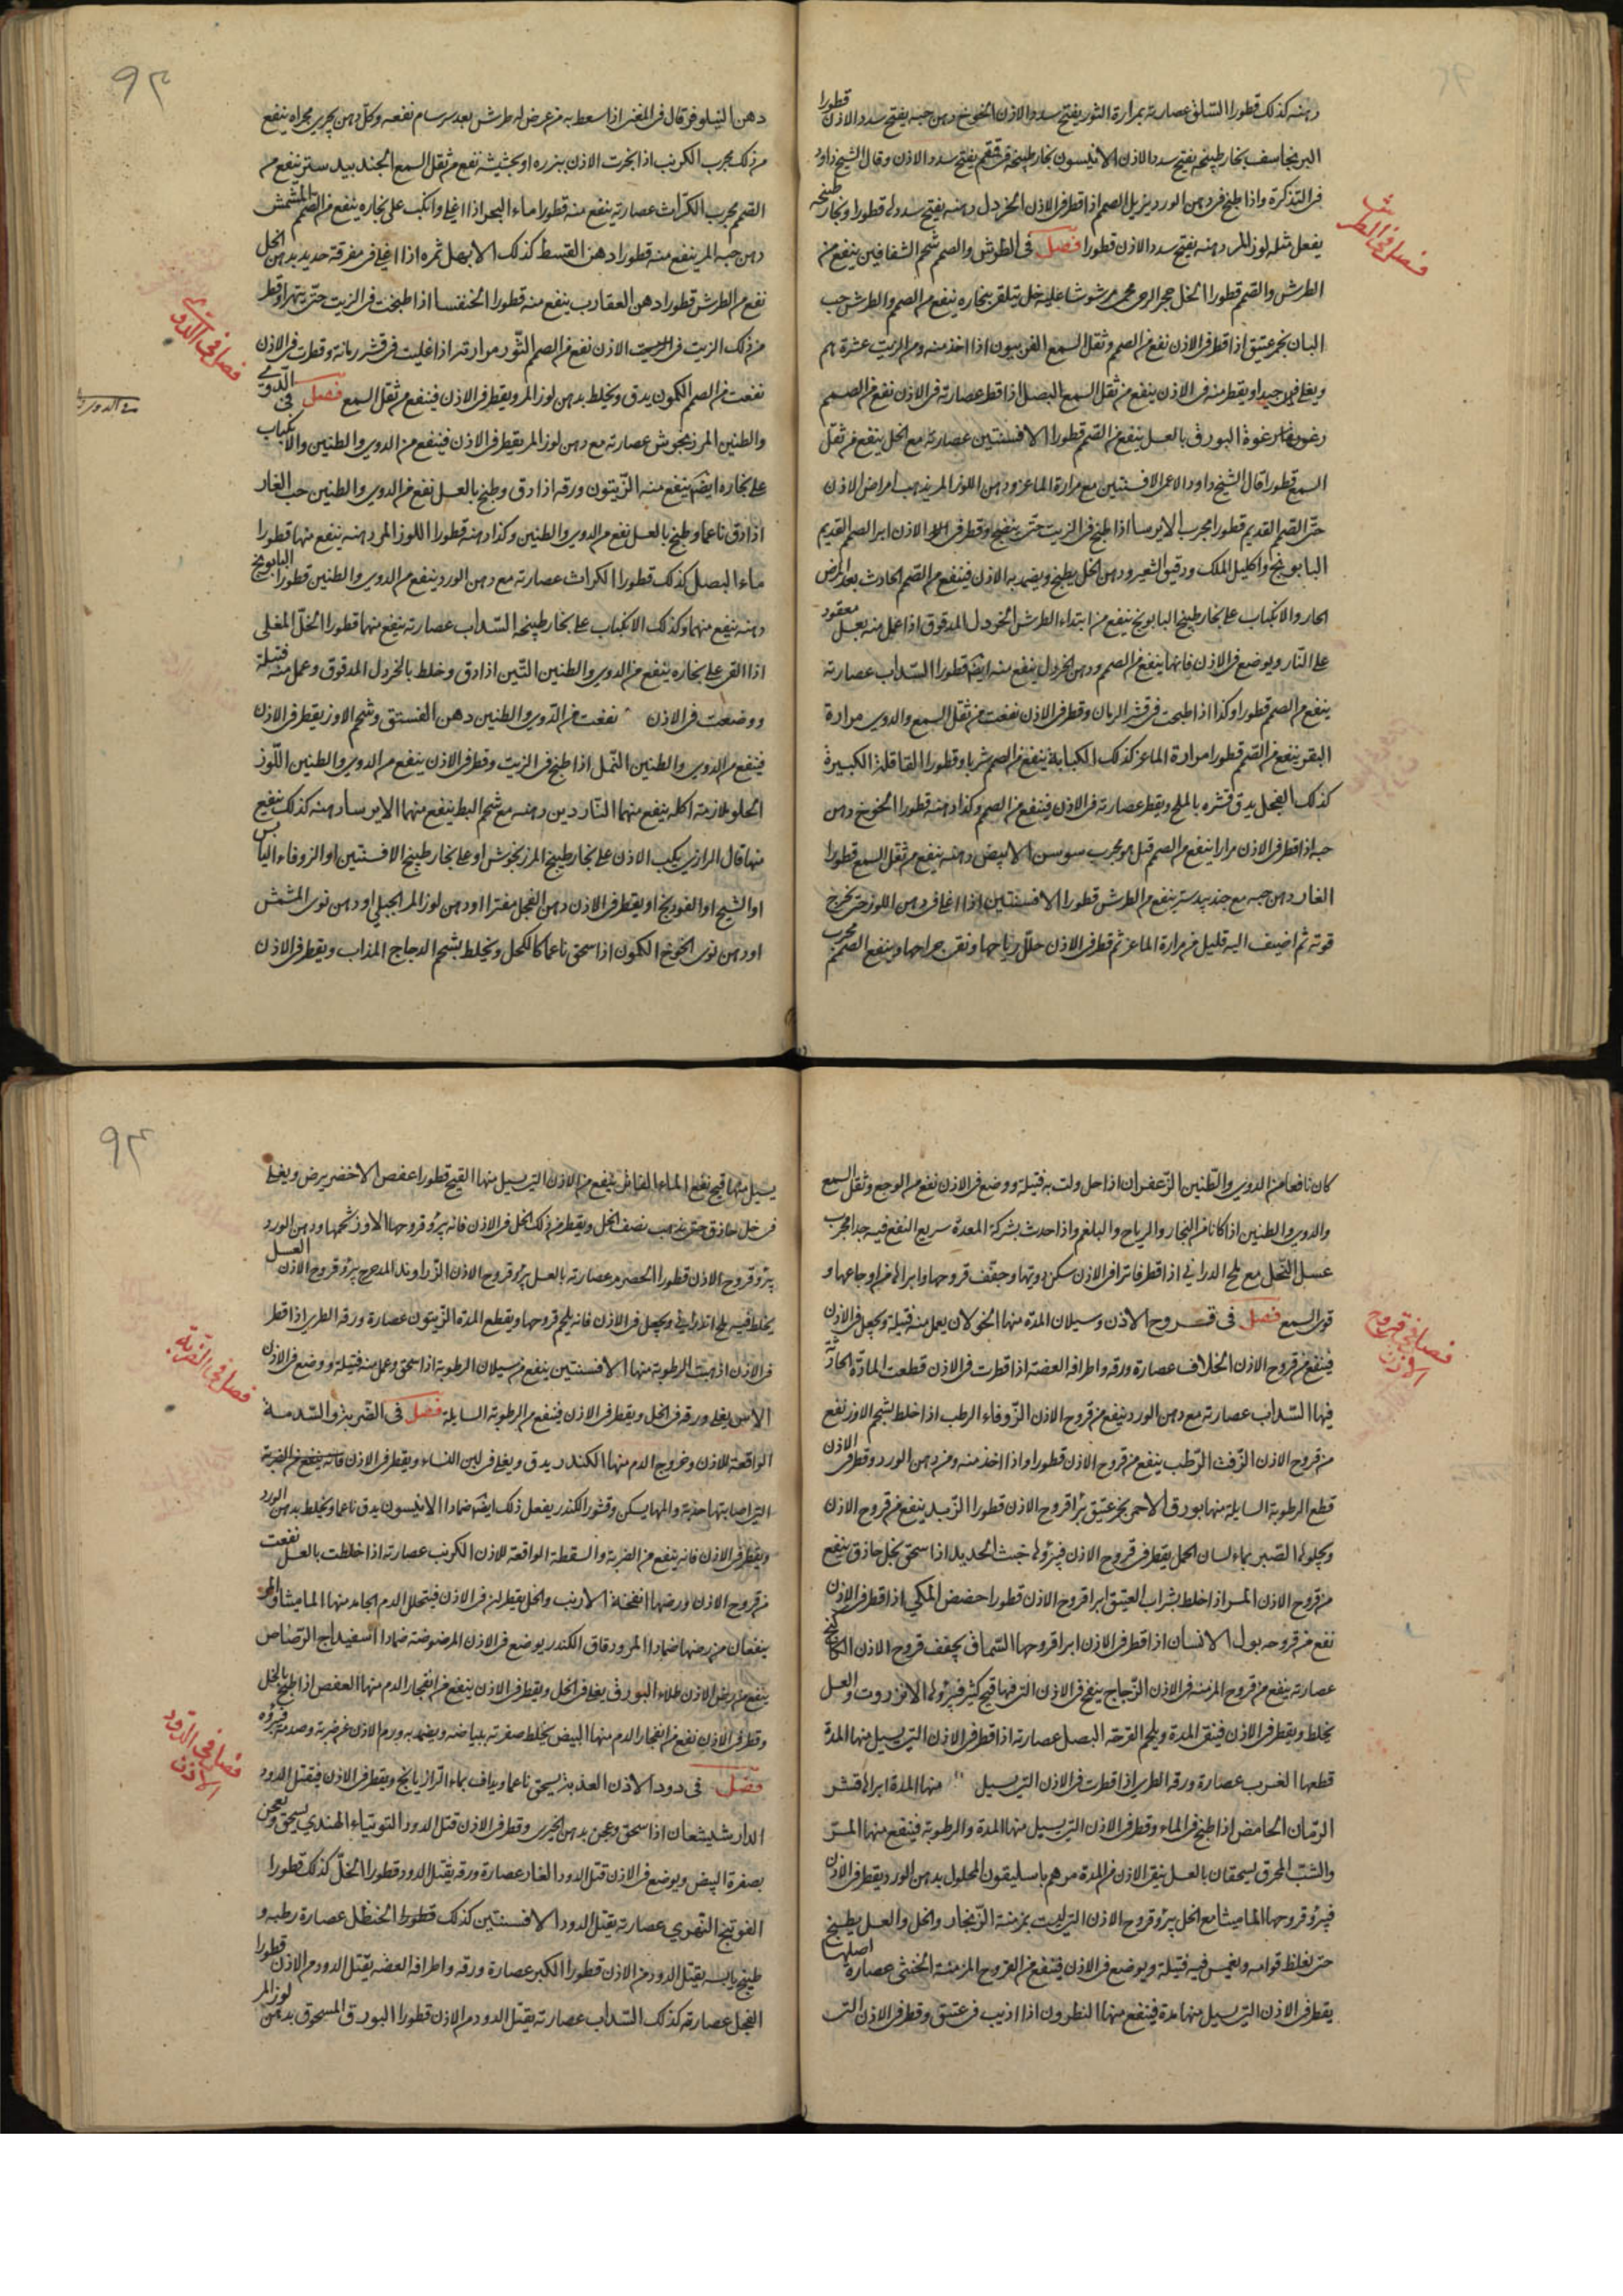 دهنه كذلك قطورا السلق عصارته بمرارة الثور يفتح سدد الاذن الخوخ دهن حبه يفتح سدد الاذن قطورا
البرنجاسف بخار طبيخه يفتح سدد الاذن الانيسون بخار طبيخه يفتح سدد الاذن وقال الشيخ داود
فى التذكرة واذا طبخ فى دهن الورد يزيل الصمم اذا قطر فى الاذن الخردل دهنه يفتح سددها قطورا وبخار طبيخه
يفعل مثله لوز المر دهنه يفتح سدد الاذن قطورا فصل فى الطرش والصمم شحم الشفانين ينفع من
الطرش والصمم قطورا الخل حجر الرحى محمى مرشوشا عليه خل يتلقى بخاره ينفع من الصمم والطرش حب
البان بخمر عتيق اذا قطر فى الاذن نفع من الصمم وثقل السمع الفربيون اذا اخذ منه ومن الزيت عشرة دراهم
ويغلى جيدا ويقطر منه فى الاذن ينفع من ثقل السمع البصل اذا قطر عصارته فى الاذن نفع من الصمم
رغوة البورق بالعسل ينفع من الصمم قطورا الافسنتين عصارته مع الخل ينفع من ثقل
السمع قطورا قال الشيخ داود الاعمى الافسنتين مع مرارة الماعز ودهن اللوز المر يذهب امراض الاذن
حتى الصمم القديم قطورا مجرب الايرسا اذا طبخ فى الزيت حتى ينضج وقطر فى الاذن ابرا الصمم القديم
البابونج واكليل الملك ودقيق الشعير ودهن الخل يطبخ ويضمد به الاذن فينفع من الصمم الحادث بعد المرض
الحار والانكباب على بخار طبيخ البابونج ينفع من ابتداء الطرش الخردل المدقوق اذا عمل منه بعسل معقود
على النار ويوضع فى الاذن فانها ينفع من الصمم ودهن الخردل ينفع منه ايضا قطورا السداب عصارته
ينفع من الصمم قطورا وكذا اذا طبخت فى قشر الرمان وقطر فى الاذن نفعت من ثقل السمع والدوى مرارة
البقر ينفع من الصمم قطورا مرارة الماعز كذلك الكبابة ينفع من الصمم شربا وقطورا القاقلة الكبيرة
كذلك الفجل يدق قشره بالملح ويقطر عصارته فى الاذن فينفع من الصمم وكذا دهنه قطورا الخوخ دهن
حبه اذا قطر فى الاذن مرارا ينفع من الصمم قيل هو مجرب سوسن الابيض دهنه ينفع من ثقل السمع قطورا
الغار دهن حبه مع جندبيدستر ينفع من الطرش قطورا الافسنتين اذا اغلى فى دهن اللوز حتى يخرج
قوته ثم اضيف اليه قليل من مرارة الماعز ثم قطر فى الاذن حلل رياحها ونقى جراحها وينفع الصمم مجرب
فصل فى الطرش
٩٣
دهن النيلوفر قال فى المغنى اذا سعط به من عرض له طرش بعد سرسام نفعه وكل دهن يجرى مجراه ينفع
من ذلك مجرب الكرنب اذا بخرت الاذن ببزره او بحشيشه نفع من ثقل السمع الجندبيدستر ينفع من
الصمم مجرب الكراث عصارته ينفع منه قطورا ماء البحر اذا اغلى وانكب على بخاره ينفع من الصمم المشمش
دهن حبه المر ينفع منه قطورا دهن القسط كذلك الابهل ثمره اذا اغلى فى مغرفة حديد بدهن الخل
نفع من الطرش قطورا دهن العقارب ينفع منه قطورا الخنفسا اذا طبخت فى الزيت حتى يتهرا وقطر
من ذلك الزيت فى الاذن نفع من الصمم الثور مرارته اذا غليت فى قشر رمانة وقطرت فى الاذن
نفعت من الصمم الكمون يدق ويخلط بدهن لوز المر ويقطر فى الاذن فينفع من ثقل السمع فصل فى الدوى
والطنين المرزنجوش عصارته مع دهن لوز المر يقطر فى الاذن فينفع من الدوى والطنين والانكباب
على بخاره ايضا ينفع منه الزيتون ورقه اذا دق وطبخ بالعسل نفع من الدوى والطنين حب الغار
اذا دق ناعما وطبخ بالعسل نفع من الدوى والطنين وكذا دهنه قطورا اللوز المر دهنه ينفع منها قطورا
ماء البصل كذلك قطورا الكراث عصارته مع دهن الورد ينفع من الدوى والطنين قطورا البابونج
دهنه ينفع منهما وكذلك الانكباب على بخار طبيخه السداب عصارته ينفع منها قطورا الخل المغلى
اذا القى على بخاره ينفع من الدوى والطنين التين اذا دق وخلط بالخردل المدقوق وعمل منه فتيلة
ووضعت فى الاذن نفعت من الدوى والطنين دهن الفستق وشحم الاوز يقطر فى الاذن
فينفع من الدوى والطنين النمل اذا طبخ فى الزيت وقطر فى الاذن ينفع من الدوى والطنين اللوز
الحلو ملازمة اكله ينفع منهما الناردين دهنه مع شحم البط ينفع منهما الايرسا دهنه كذلك ينفع
منها قال الرازى يكب الاذن على بخار طبيخ المرزنجوش او على بخار طبيخ الافسنتين او الزوفاء اليابس
او الشيح او الفودنج او يقطر فى الاذن دهن الفجل مفترا او دهن لوز المر الجبلى او دهن نوى المشمش
او دهن نوى الخوخ الكمون اذا سحق ناعما كالكحل ويخلط بشحم الدجاج المذاب ويقطر فى الاذن
فصل فى الدوى
كان نافعا من الدوى والطنين الزعفران اذا حل ولت به فتيلة ووضع فى الاذن نفع من الوجع وثقل السمع
والدوى والطنين اذا كانا من البخار والرياح والبلغم واذا حدث بشركة المعدة سريع النفع فيه جدا مجرب
عسل النحل مع ملح الدرانى اذا قطر فاترا فى الاذن سكن دويها وجفف قروحها وابراها من اوجاعها و
قوى السمع فصل فى قروح الاذن وسيلان المدة منها الخولان يعمل منه فتيلة ويجعل فى الاذن
فينفع من قروح الاذن الخلاف عصارة ورقه واطرافه الغضة اذا قطرت فى الاذن قطعت المادة الحادثة
فيها السداب عصارته مع دهن الورد ينفع من قروح الاذن الزوفاء الرطب اذا خلط بشحم الاوز نفع
من قروح الاذن الزفت الرطب ينفع من قروح الاذن قطورا واذا اخذ منه ومن دهن الورد وقطر فى الاذن
قطع الرطوبة السايلة منها بورق الاحمر بخمر عتيق يبرا قروح الاذن قطورا الزبد ينفع من قروح الاذن
ويجلوها الصبر بماء لسان الحمل يقطر فى قروح الاذن فيبرؤها خبث الحديد اذا سحق بخل حاذق ينفع
من قروح الاذن المر اذا خلط بشراب العتيق ابرا قروح الاذن قطورا حضض المكى اذا قطر فى الاذن
نفع من قروحه بول الانسان اذا قطر فى الاذن ابرا قروحها السماق يجفف قروح الاذن الكاكنج
عصارته ينفع من قروح المزمنه فى الاذن الزجاج ينفخ فى الاذن التى فيها قيح كثير فيبرؤها الانزروت والعسل
يخلط ويقطر فى الاذن فينقى المدة ويلحم القرحة البصل عصارته اذا قطر فى الاذن التى يسيل منها المدة
قطعها الغرب عصارة ورقه الطرى اذا قطرت فى الاذن التى يسيل منها المدة ابراه قشر
الرمان الحامض اذا طبخ فى الماء وقطر فى الاذن التى يسيل منها المدة والرطوبة فينفع منهما المر
والشب المحرق يسحقان بالعسل ينقى الاذن من المدة مرهم باسليقون المحلول بدهن الورد يقطر فى الاذن
فيبرؤ قروحها الماميثا مع الخل يبرؤ قروح الاذن التى ليست بمزمنة الزنجار والخل والعسل يطبخ
حتى يغلظ قوامه ويغمس فيه فتيلة ويوضع فى الاذن فينفع من القروح المزمنة الخنثى عصارة اصلها
يقطر فى الاذن التى يسيل منها مدة فينفع منها النطرون اذا اذيب فى عتيق وقطر فى الاذن التى
فصل فى قروح الاذن
٩٤
يسيل منها قيح نفع الماء الفاتر ينفع من الاذن التى يسيل منها القيح قطورا عفص الاخضر يرض ويغلى
فى خل حاذق حتى يذهب نصف الخل ويقطر من ذلك الخل فى الاذن فانه يبرؤ قروحها الاوز شحمها ودهن الورد
يبرؤ قروح الاذن قطورا الحصرم عصارته بالعسل يبرؤ قروح الاذن الزراوند المدحرج يبرؤ قروح الاذن العسل
يخلط فيه ملح اندرانى ويجعل فى الاذن فانه يلحم قروحها ويقطع المدة الزيتون عصارة ورقه الطرى اذا قطر
فى الاذن اذهبت الرطوبة منها الافسنتين ينفع من سيلان الرطوبة اذا سحق وعمل منه فتيلة ووضع فى الاذن
الاس يغلى ورقه فى الخل ويقطر فى الاذن فينفع من الرطوبة السايلة فصل فى الضربة والصدمة
الواقعة للاذن وخروج الدم منها الكندر يدق ويغلى فى لبن النساء ويقطر فى الاذن فانه ينفع من الضربة
التى اصابتها حديثة والمها يسكن وقشور الكندر يفعل ذلك ايضا ضمادا الانيسون يدق ناعما ويخلط بدهن الورد
ويقطر فى الاذن فانه ينفع من الضربة والسقطة الواقعة للاذن الكرنب عصارته اذا خلطت بالعسل نفعت
من قروح الاذن ورضها انفحة الارنب والخل يقطران فى الاذن فيتحلل الدم الجامد منها الماميثا والمر
ينفعان من رضها ضمادا المر ودقاق الكندر يوضع فى الاذن المرضوضة ضمادا اسفيداج الرصاص
ينفع من رض الاذن طلاء البورق يغلى فى الخل ويقطر فى الاذن ينفع من انفجار الدم منها العفص اذا طبخ بالخل
وقطر فى الاذن نفع من انفجار الدم منها البيض يخلط صفرته ببياضه ويضمد به ورم الاذن عن ضربة وصدمة فيبرؤه
فصل فى دود الاذن العذبة يسحق ناعما ويداف بماء الرازيانج ويقطر فى الاذن فيقتل الدود
الدارشيشعان اذا سحق وعجن بدهن الخيرى وقطر فى الاذن قتل الدود التوتياء الهندى يسحق ويعجن
بصفرة البيض ويوضع فى الاذن قتل الدود الغار عصارة ورقه يقتل الدود قطورا الخل كذلك قطورا
الفوتنج النهرى عصارته يقتل الدود الافسنتين كذلك قطورا الحنظل عصارة رطبه و
طبيخ يابسه يقتل الدود من الاذن قطورا الكبر عصارة ورقه واطرافه الغضه يقتل الدود من الاذن قطورا
الفجل عصارته كذلك السداب عصارته يقتل الدود من الاذن قطورا البورق المسحوق بدهن لوز المر
فصل فى الضربة
فصل فى الدود الاذن